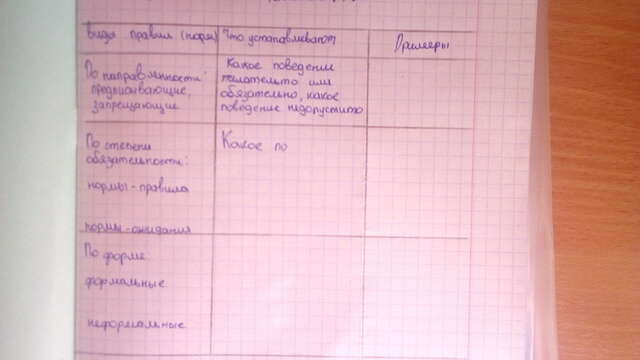 Виды правил (норм) Что устанавливают Примеры
По направленности:
предписывающие,
запрещающие
Какое поведение
желательно или
обязательно, какое
поведение недопустимо
По степени
обязательности:
нормы-правила
нормы-ожидания
Какое по
По форме
формальные
неформальные